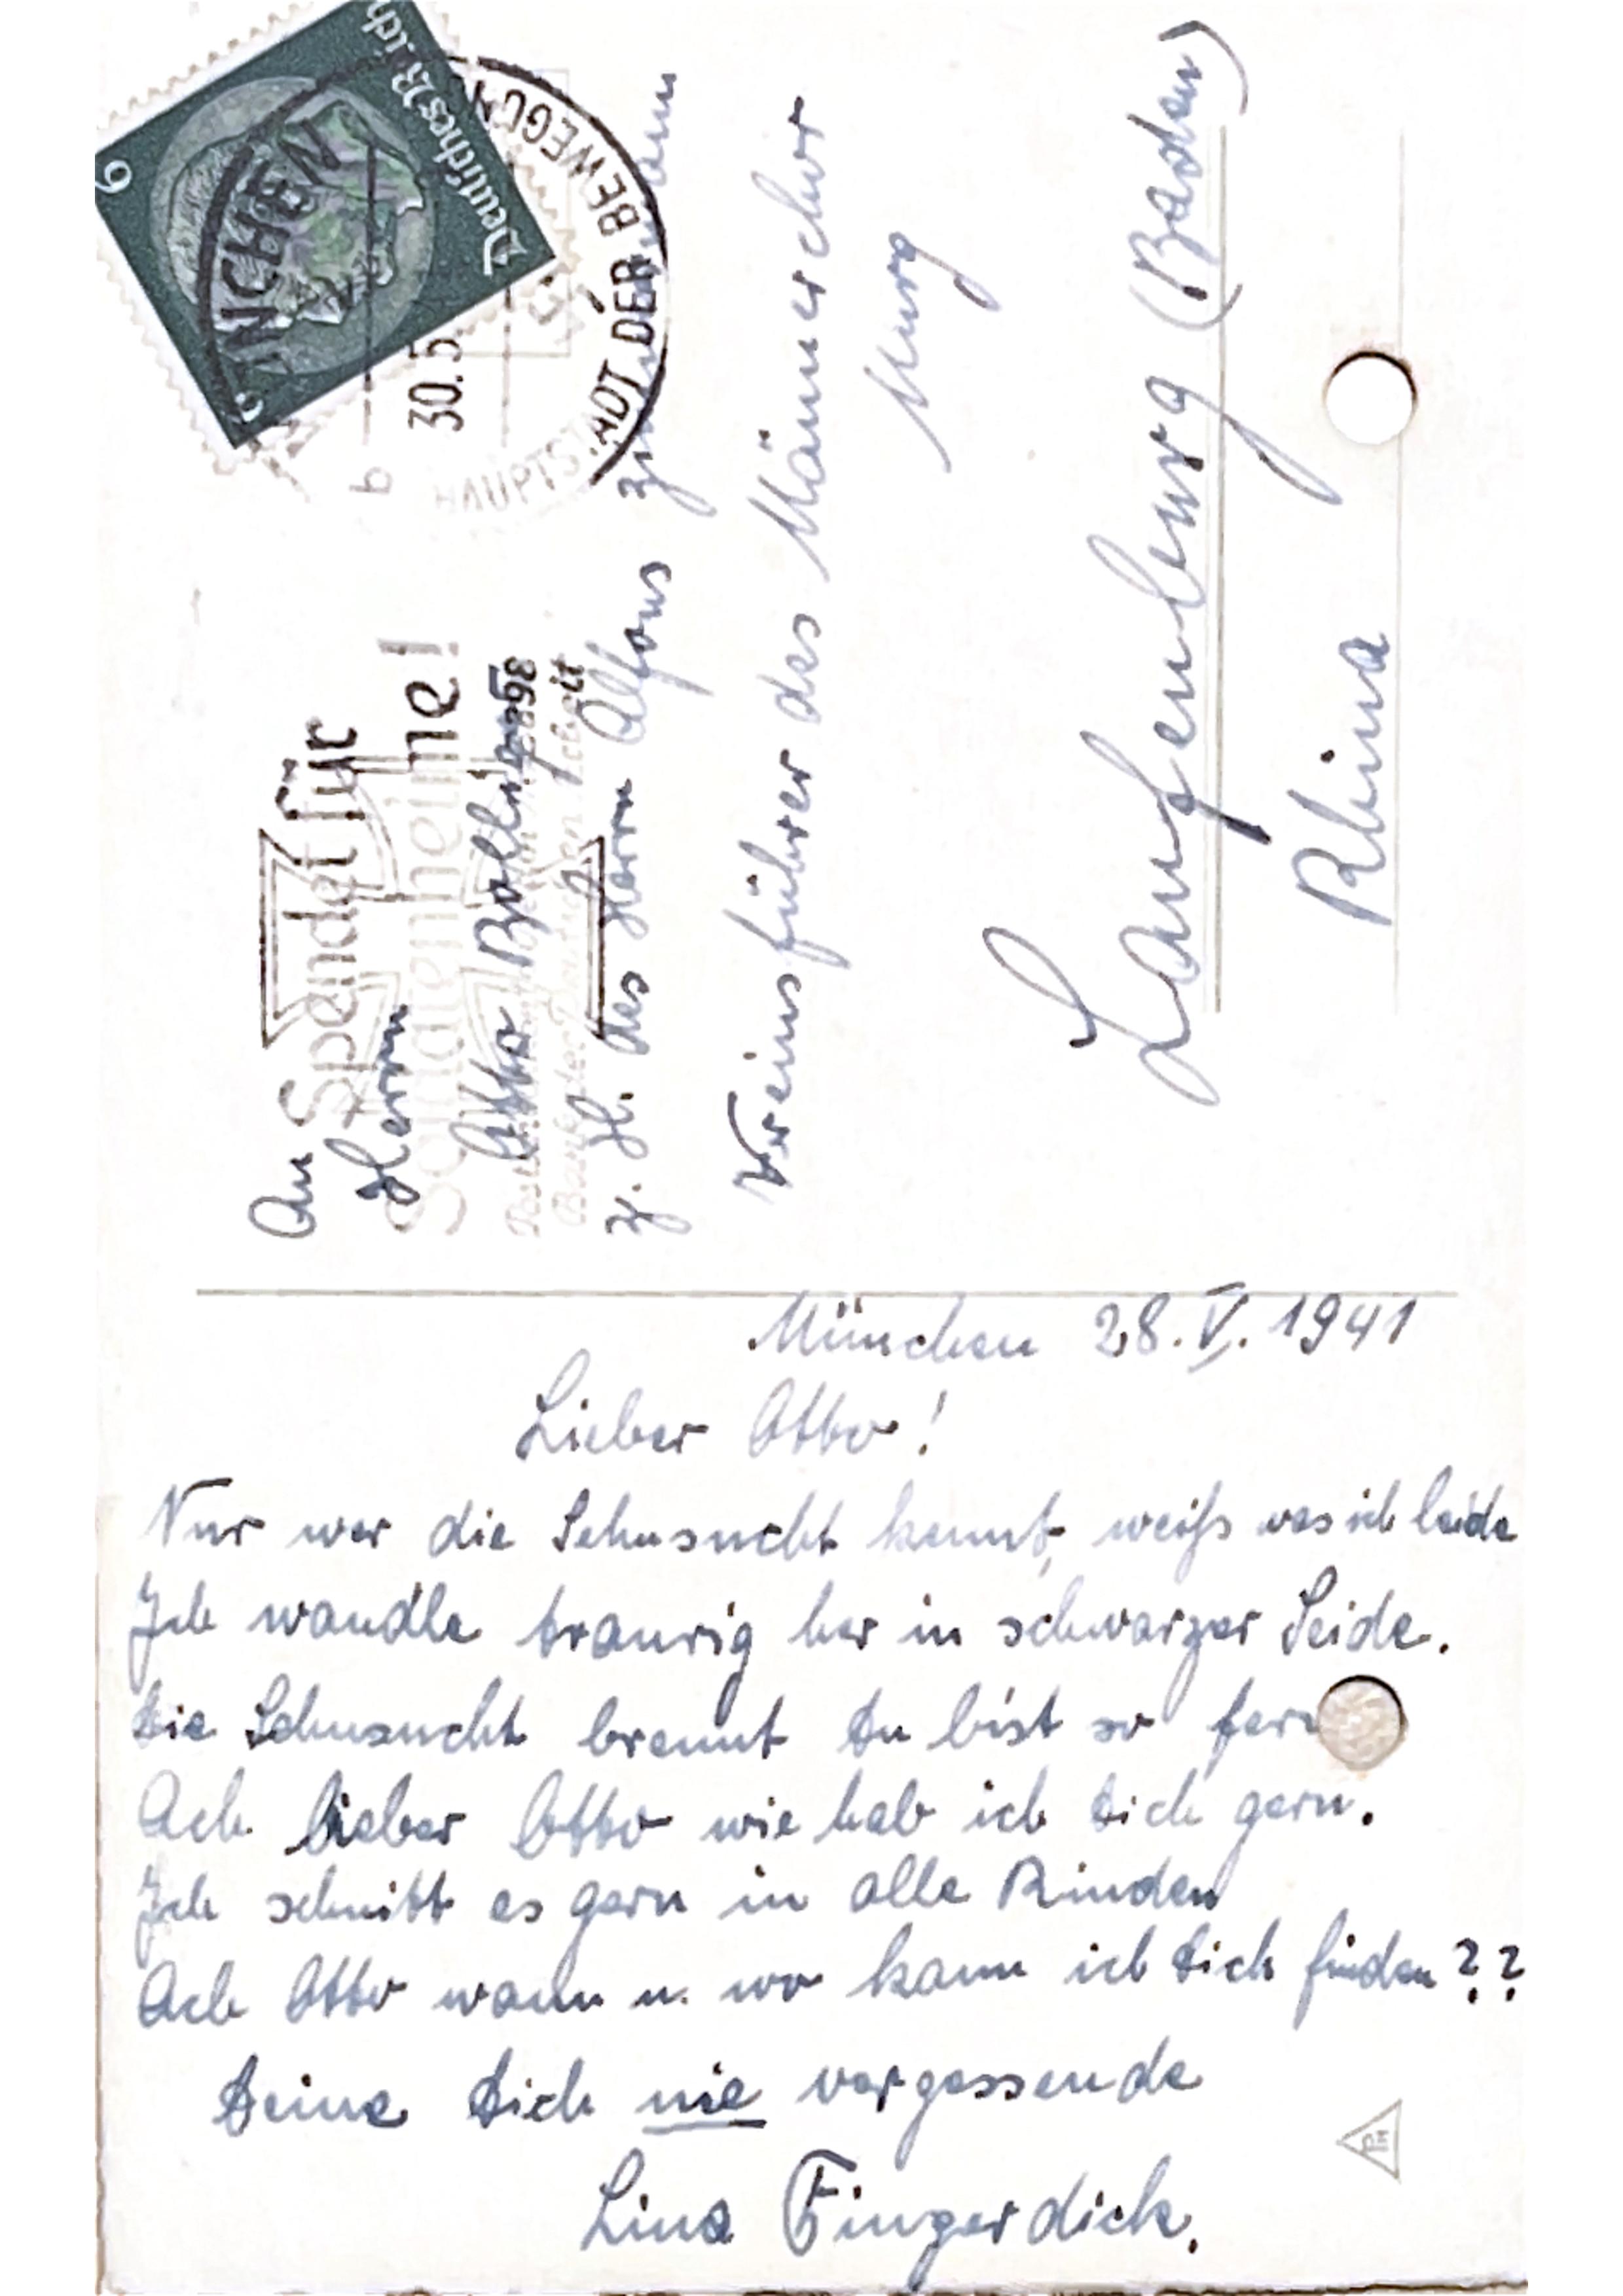 Deutsches Reich
6
MÜNCHEN
30.5.
b
HAUPTSTADT DER BEWEGUNG
Spendet für
Soldatenheime!
Bank der Deutschen Arbeit
An
Herrn
Otto Bollinger
z. H. des Herrn Alfons
Vereinsführer des Männerchor
Murg
Laufenburg (Baden)
Rhina
München 28. V. 1941
Lieber Otto!
Nur wer die Sehnsucht kennt, weiß was ich leide
Ich wandle traurig her in schwarzer Seide.
Die Sehnsucht brennt Du bist so fern
Ach lieber Otto wie hab ich Dich gern.
Ich schnitt es gern in alle Rinden
Ach Otto wann u. wo kann ich Dich finden??
Deine Dich nie vergessende
Lina Fingerdick.